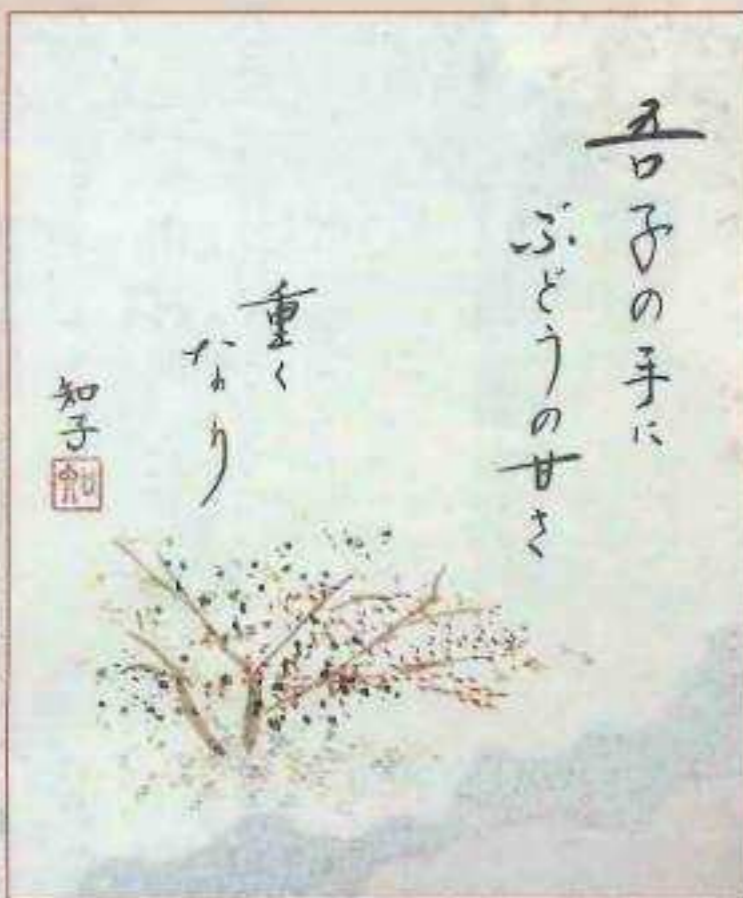 吾子の手に
ぶどうの甘さ
重く
なり
知子